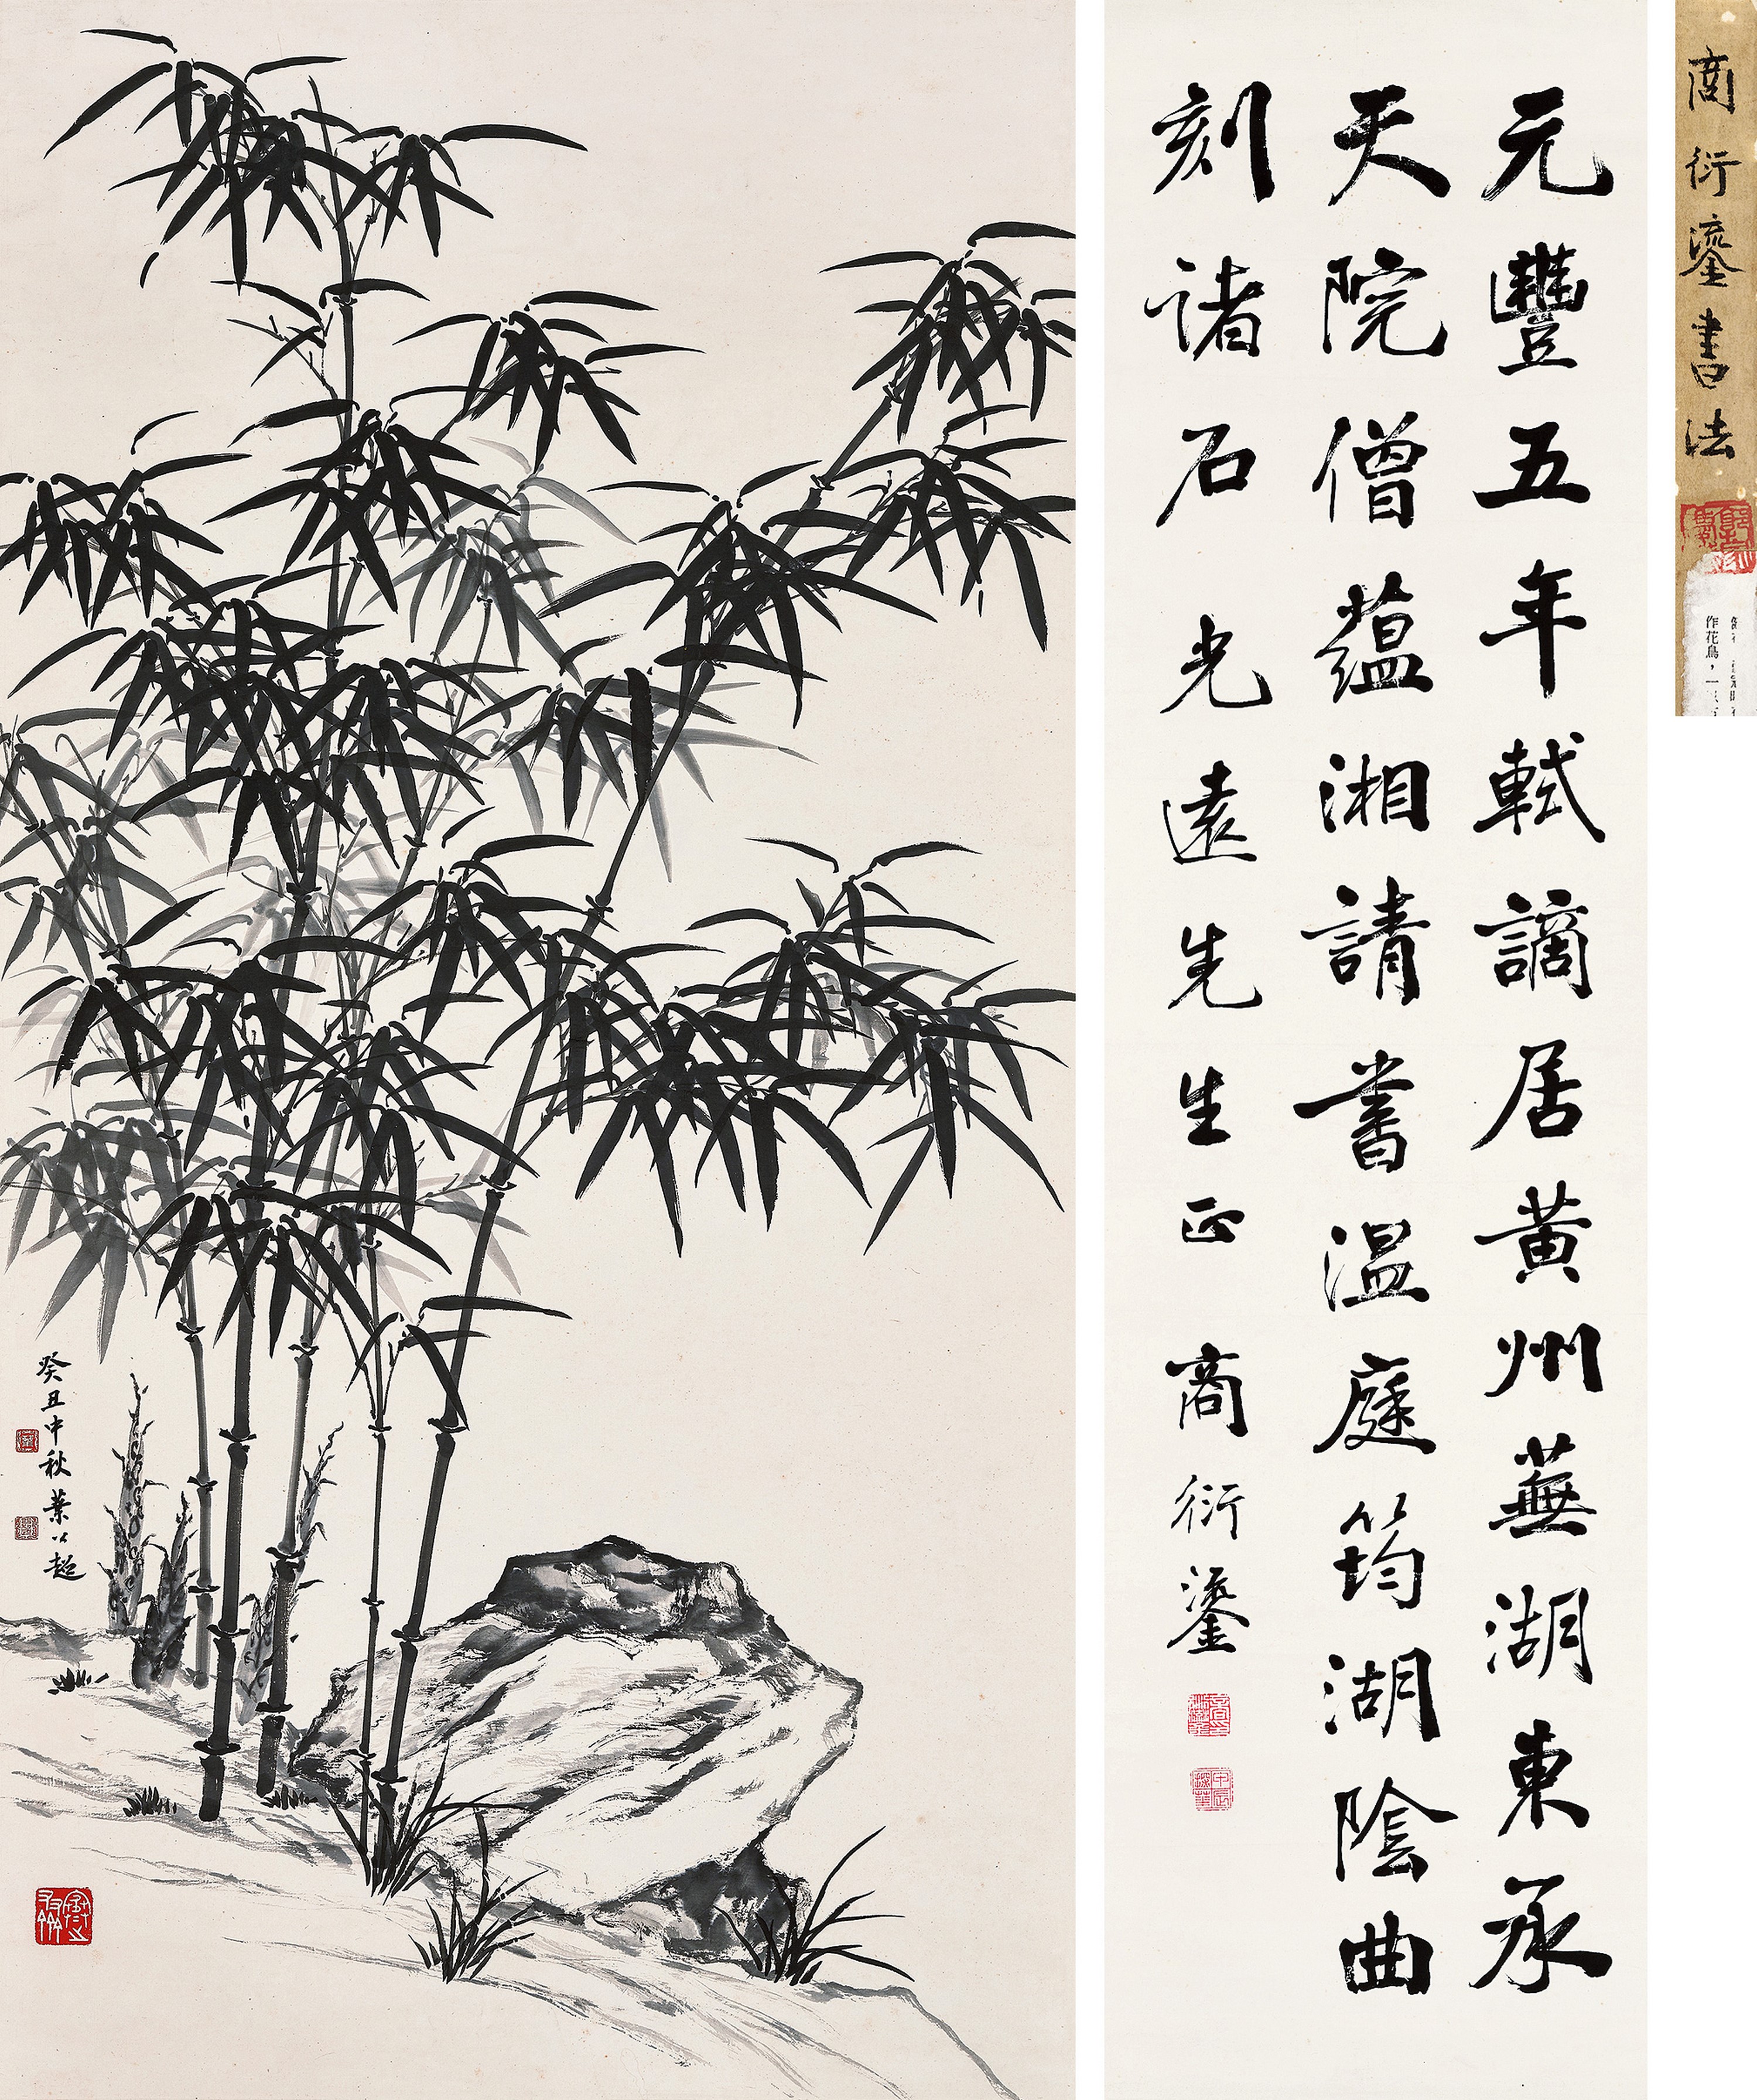 元豐五年軾謫居黃州蕪湖東承
天院僧蘊湘請書溫庭筠湖陰曲
刻諸石 光遠先生正 商衍鎏
商衍鎏書法
作花鳥，一
癸丑中秋葉公超